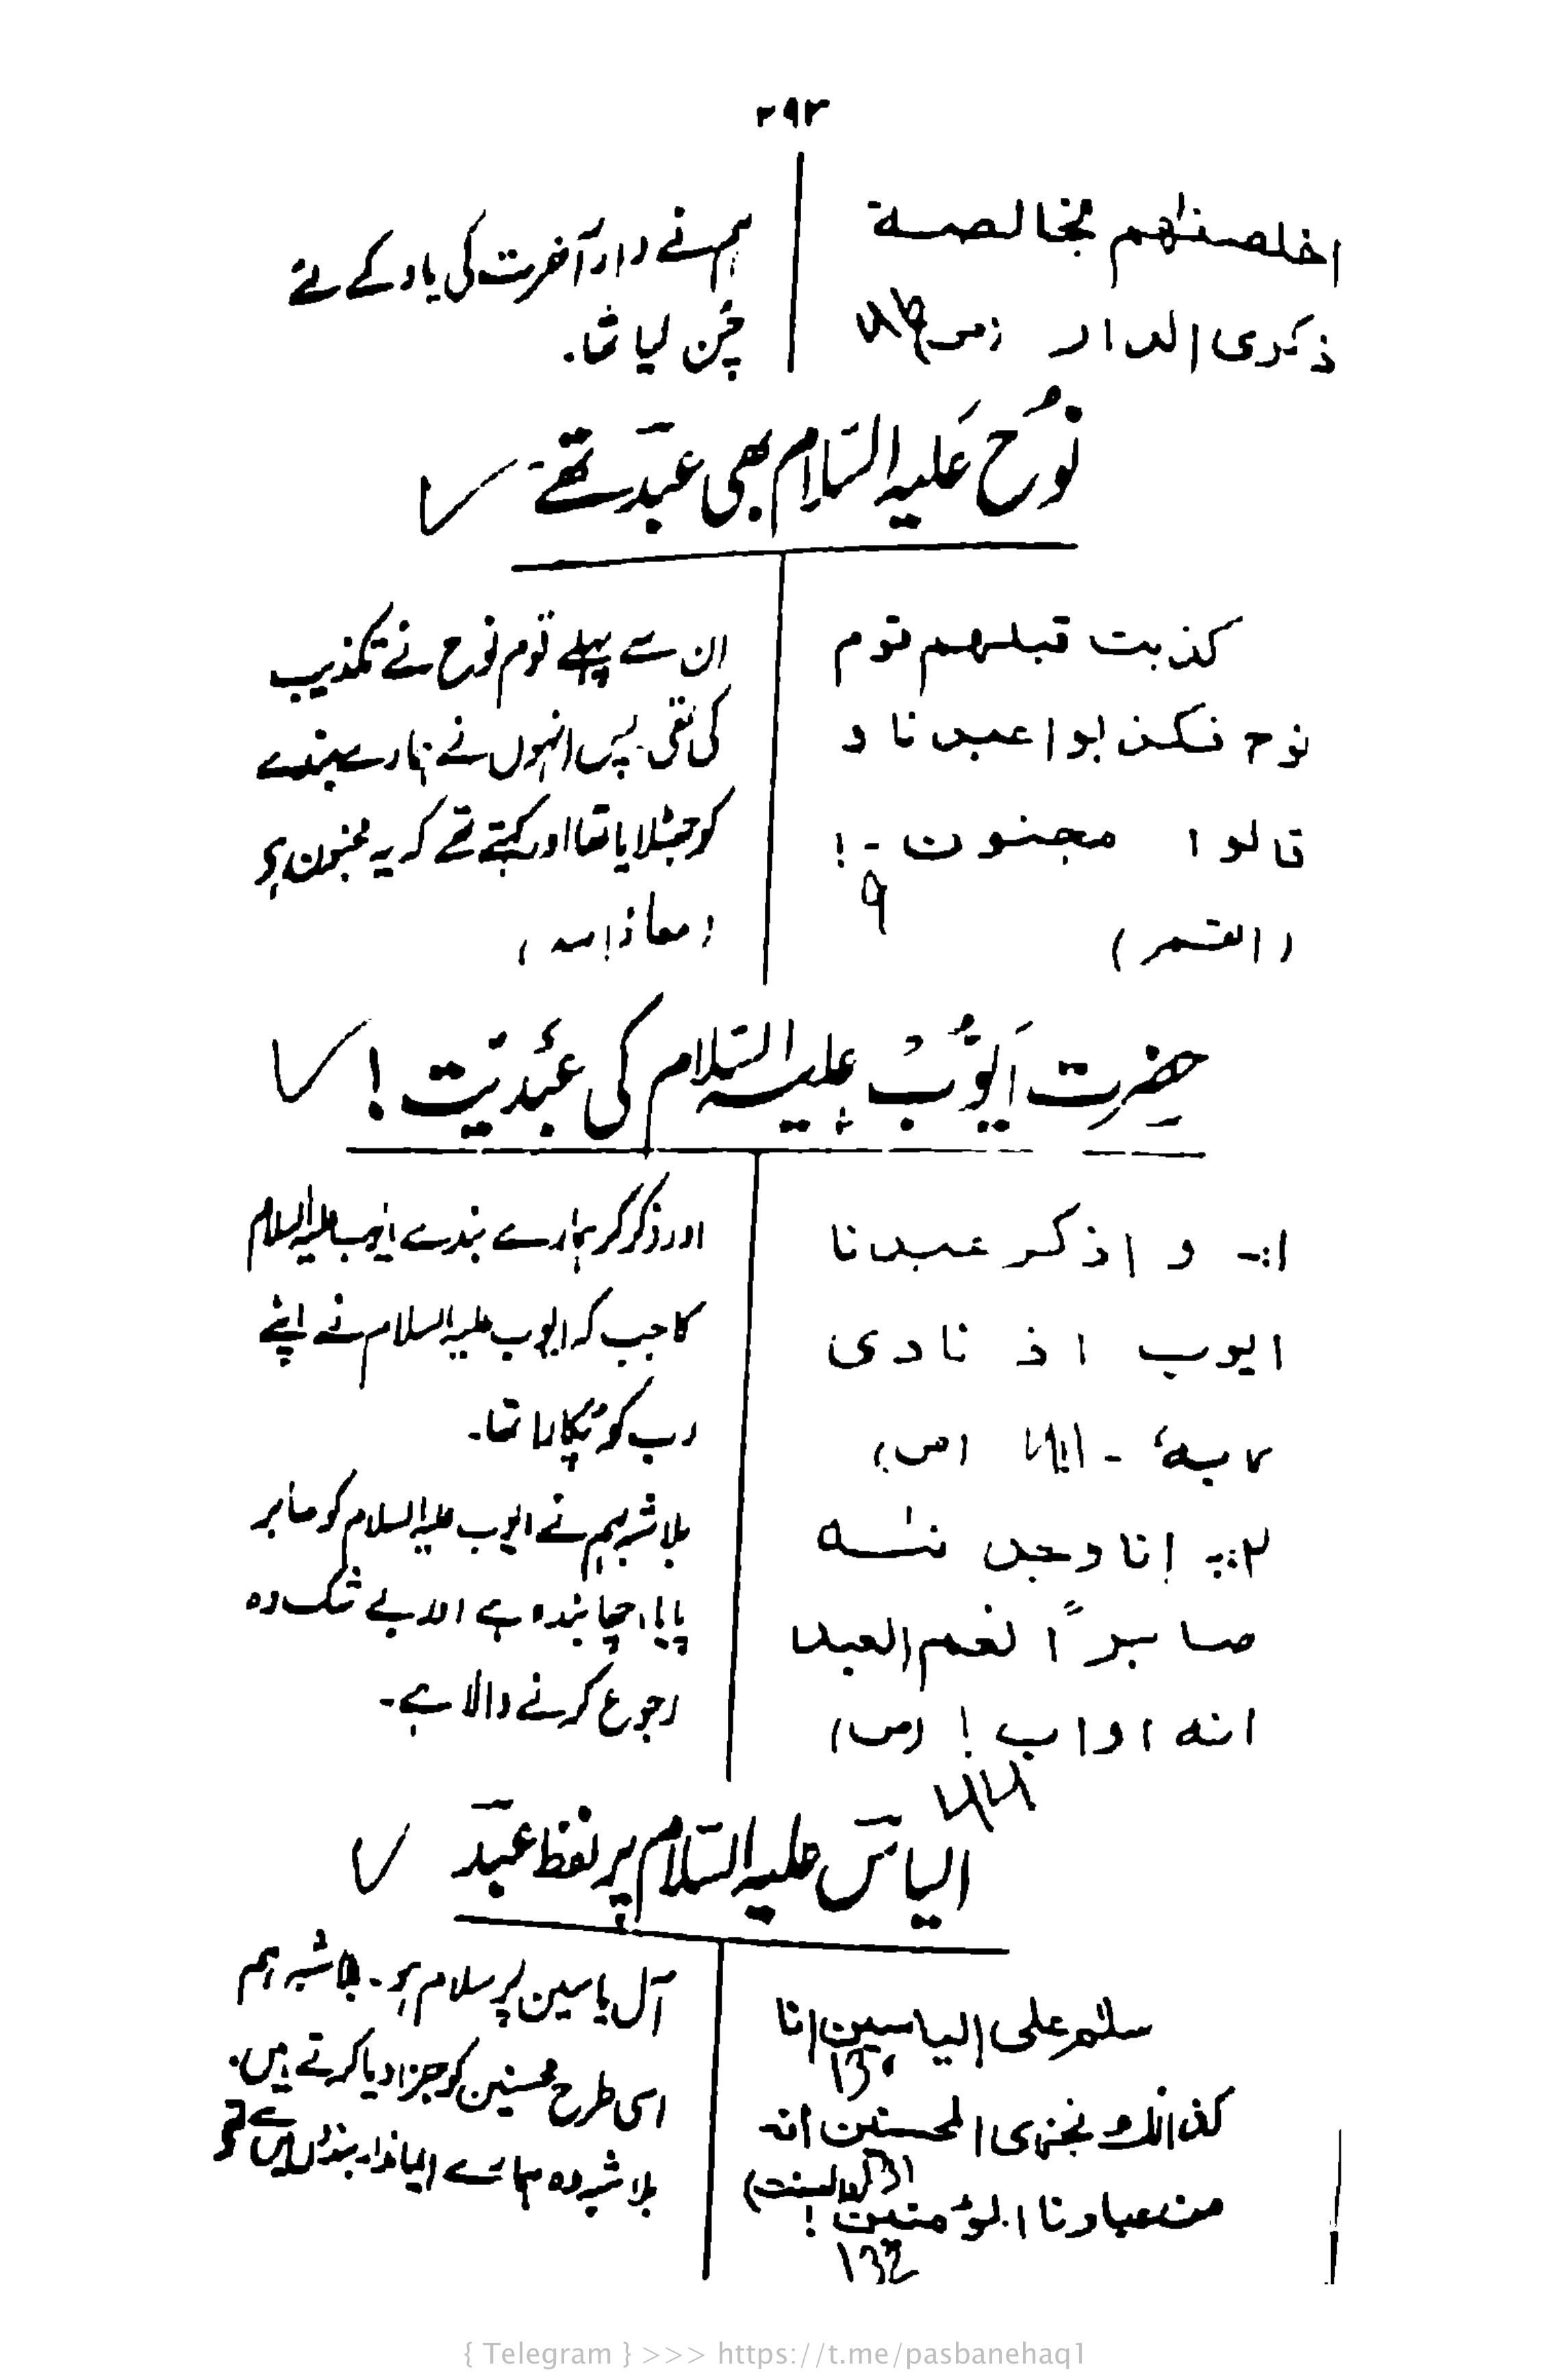 ۲۹۲
اخلصنٰهم بخالصة
ذکری الدار (ص) ۴۶
ہم نے دار آخرت کی یاد کے لئے
چُن لیا تھا۔
نوُح عَلیہ السَّلام بھی عبدَ تھے
کذبت قبلهم قوم
نوح فکذبوا عبدنا و
قالوا مجنون -!
۹
(القمر)
ان سے پہلے قوم نوح نے تکذیب
کی تھی۔ پس انہوں نے ہمارے بندے
کو جھٹلایا تھا اور کہتے تھے کہ یہ مجنون ہے
(معاذ اللہ)
حضرت اَیّوُبْ علیہ السَّلام کی عبدیّت!
۱:۔ و اذکر عبدنا
ایوب اذ نادی
ربه - ۴۱ (ص)
۲:۔ انا وجدنٰه
صابراً نعم العبد
انه اواب! (ص)
۴۴
اور ذکر کر ہمارے بندے ایوب علیہ السلام
کا جب کہ ایوب علیہ السلام نے اپنے
رب کو پُکارا تھا۔
بلاشبہ ہم نے ایوب علیہ السلام کو صابر
پایا، اچھا بندہ ہے اور بے شک وہ
رجوع کرنے والا ہے۔
الیاسَ علیہ السَّلام پر لفظ عبدَ
سلٰم علی الیاسین انا
130
کذالک نجزی المحسنین انه
131 (الصٰفٰت)
من عبادنا المؤمنین!
132
آل یاسین پر سلام ہو۔ بلاشبہ ہم
اسی طرح محسنین کو جزا دیا کرتے ہیں۔
بلاشبہ وہ ہمارے ایماندار بندوں میں سے تھے
{ Telegram } >>> https://t.me/pasbanehaq1